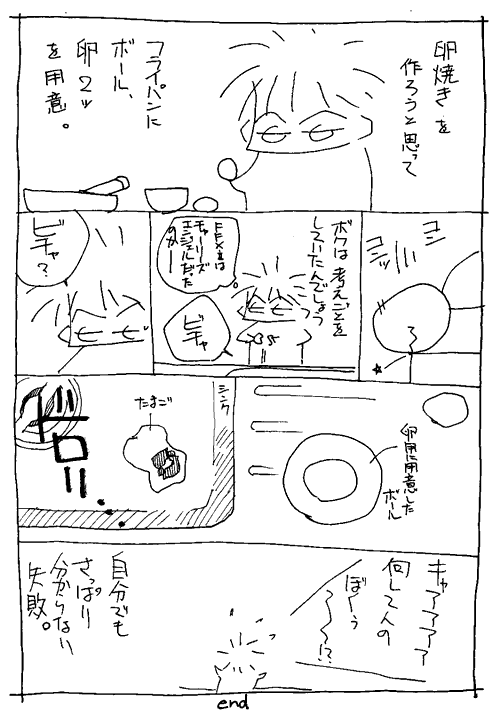 卵焼きを
作ろうと思って
フライパンに
ボール、
卵2ッ
を用意。
コン
コンッ
ボクは考えごとを
していたんでしょう
FFX2は
チャーリーズ
エンジェルだった
のかー
ビチャ
ビチャ?
卵用に用意した
ボール
シンク
たまご
ギロリ
キャアアアアア
何してんの
ぼくう
〜〜!?
自分でも
さっぱり
分からない
失敗。
end